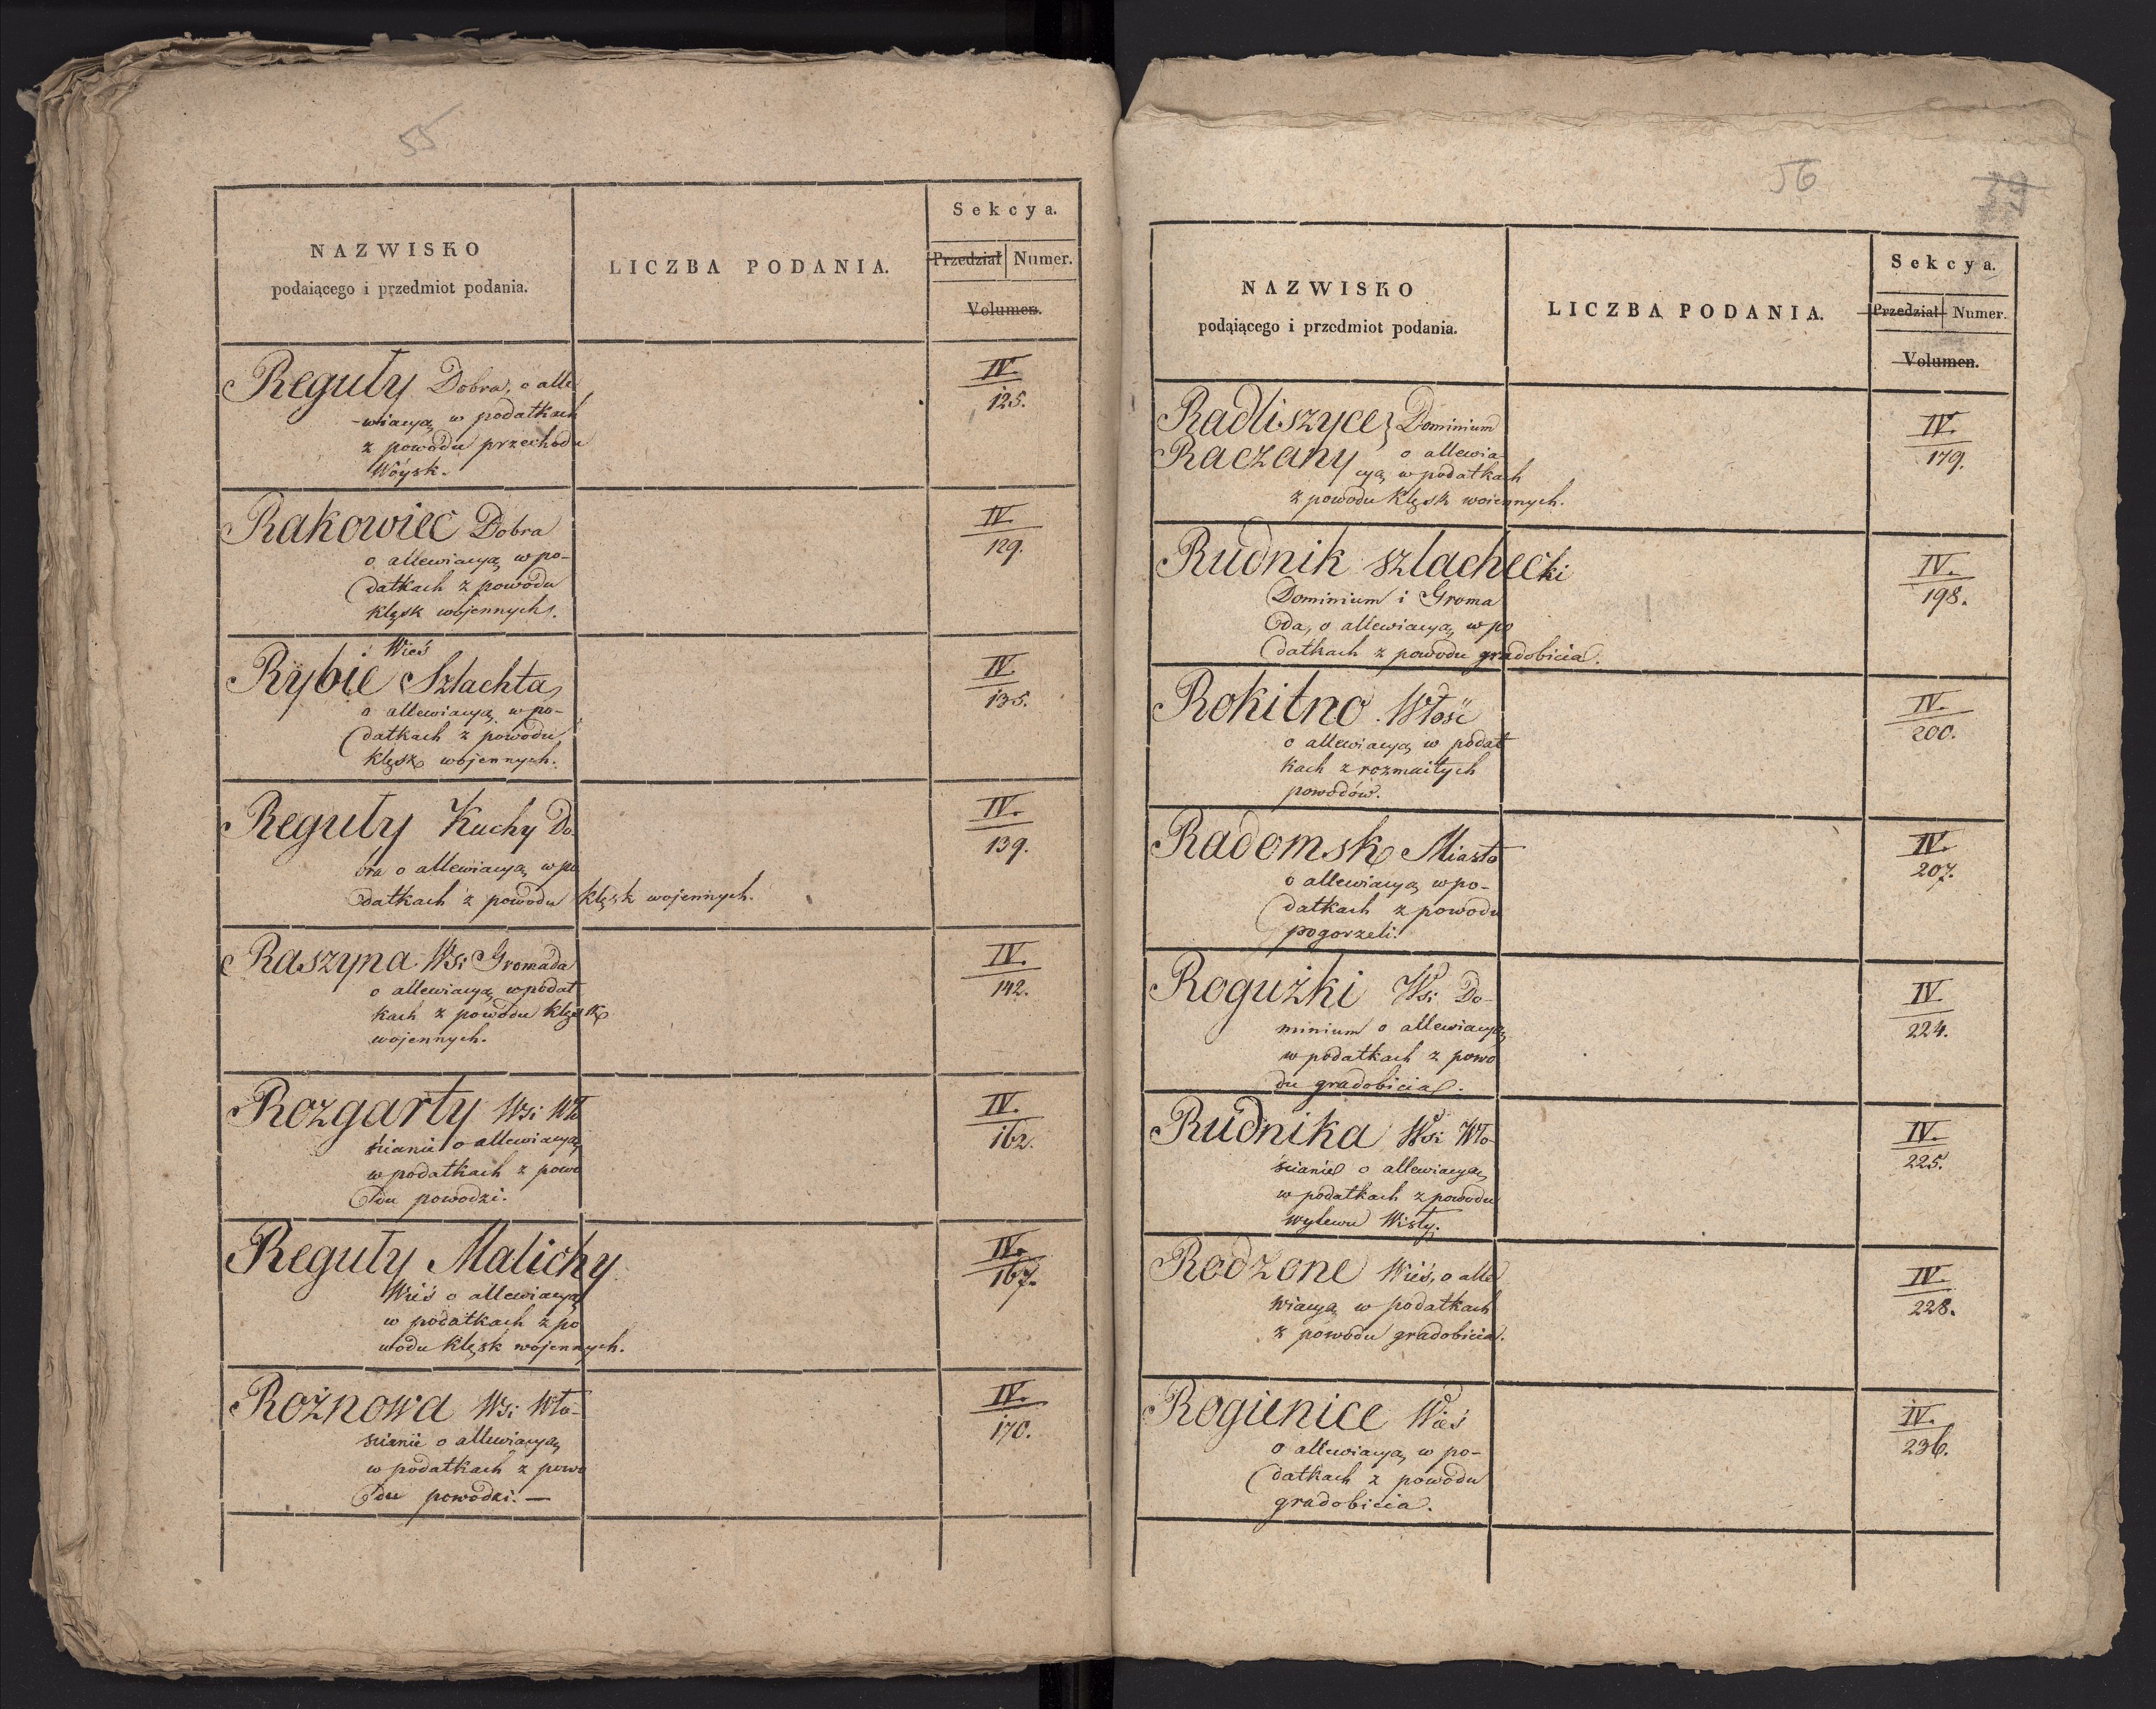 55
NAZWISKO
podaiącego i przedmiot podania.
LICZBA PODANIA.
Sekcya.
Przedział Numer.
Volumen.
Reguły Dobra, o alle-
-wiacyą w podatkach
z powodu przechodu
Woysk.
IV.
125.
Rakowiec Dobra
o allewiacyą w po-
datkach z powodu
klęsk wojennych.
IV.
129.
Wieś
Rybie Szlachta,
o allewiacyą w po-
datkach z powodu
klęsk wojennych.
IV.
135.
Reguły Kuchy Do-
bra o allewiacyą w po
datkach z powodu klęsk wojennych.
IV.
139.
Raszyna Wsi Gromada
o allewiacyą w podat
kach z powodu klęsk
wojennych.
IV.
142.
Rozgarty Wsi Wło
ścianie o allewiacyą
w podatkach z powo
du powodzi.
IV.
162.
Reguły Malichy
Wieś o allewiacyą
w podatkach z po
wodu klęsk wojennych.
IV.
167.
Rożnowa Wsi Wło-
ścianie o allewiacyą
w podatkach z powo
du powodzi. —
IV.
170.
56
NAZWISKO
podąiącego i przedmiot podania.
LICZBA PODANIA.
Sekcya.
Przedział Numer.
Volumen.
Radliszyce } Dominium
Raczany o allewia-
cyą w podatkach
z powodu klęsk woiennych.
IV.
179.
Rudnik szlachecki
Dominium i Groma
da, o allewiacyą w po
datkach z powodu gradobicia.
IV.
198.
Rokitno Włość
o allewiacyą w podat
kach z rozmaitych
powodów.
IV.
200.
Radomsk Miasto
o allewiacyą w po-
datkach z powodu
pogorzeli.
IV.
207.
Rogużki Wsi Do-
minium o allewiacyą
w podatkach z powo
du gradobicia.
IV.
224.
Rudnika Wsi Wło-
ścianie o allewiacyą
w podatkach z powodu
wylewu Wisły.
IV.
225.
Rodzone Wieś, o alle
wiacyą w podatkach
z powodu gradobicia.
IV.
228.
Rogienice Wieś
o allewiacyą w po-
datkach z powodu
gradobicia.
IV.
236.